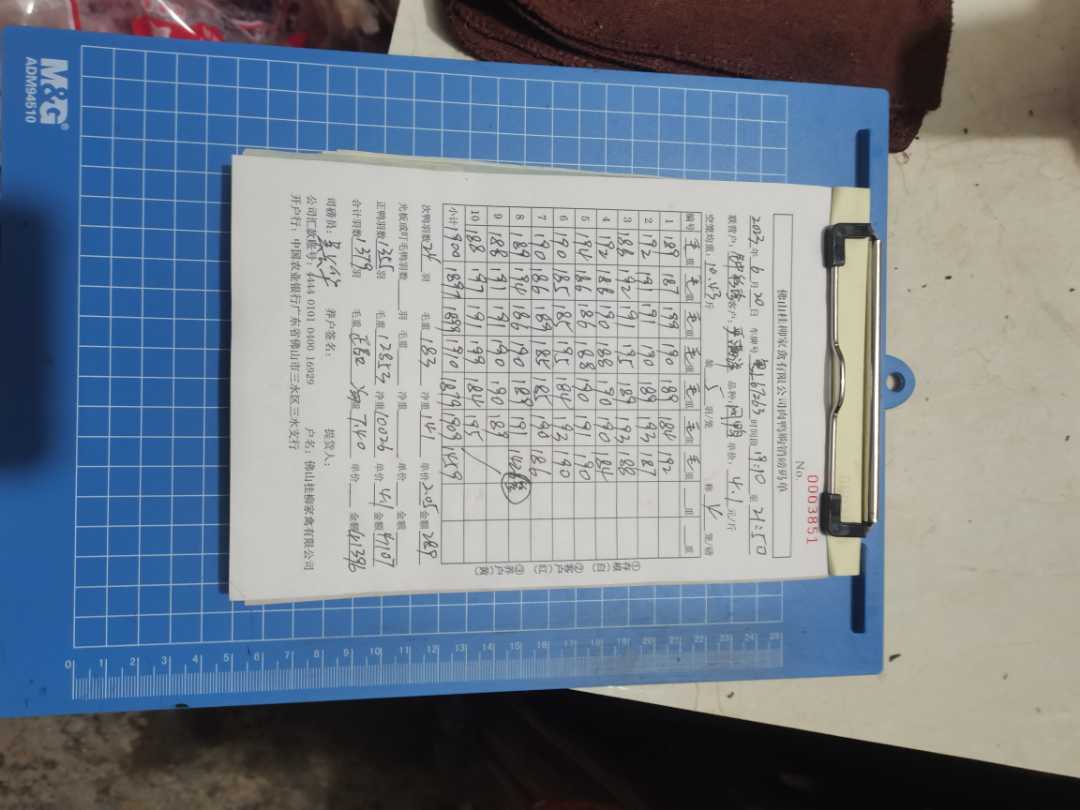 M&G®
ADM94510
佛山桂柳家禽有限公司肉鸭购销磅码单
No. 0003851
2023年 6月 20日 车牌号 67263 时间段 19:10 至 21:50
联营户: 客户: 品种: 单价: 4.1 元/斤
空笼均重: 10.43 斤 装 5 羽/笼 称 4 笼/磅
编号 毛重 毛重 毛重 毛重 毛重 毛重 毛重 重 重
1 189 187 189 190 189 184 192
2 192 191 191 190 189 193 187
3 188 192 191 195 189 193 188
4 192 188 190 188 190 190 184
5 194 186 186 188 190 191 190
6 190 185 185 195 184 193 190
7 190 186 189 185 185 190 186
8 189 194 186 190 189 191 142
9 188 191 191 190 190 189
10 188 197 191 199 184 195
小计 1900 1897 1889 1910 1879 1909 1459
①存根(白) ②客户(红) ③养户(黄)
次鸭羽数 24 羽 毛重 183 净重 141 单价 2.05 金额 289
光板或盯毛鸭羽数 羽 毛重 净重 单价 金额
正鸭羽数 1355 羽 毛重 12853 净重 10026 单价 4.1 金额 41107
合计羽数 1379 羽 毛重 重 7.40 单价 金额 41396
司磅员: 养户签名: 提货人:
公司汇款账号: 444 0101 0400 16929 户名: 佛山桂柳家禽有限公司
开户行: 中国农业银行广东省佛山市三水区三水支行
0 1 2 3 4 5 6 7 8 9 10 11 12 13 14 15 16 17 18 19 20 21 22 23 24 25